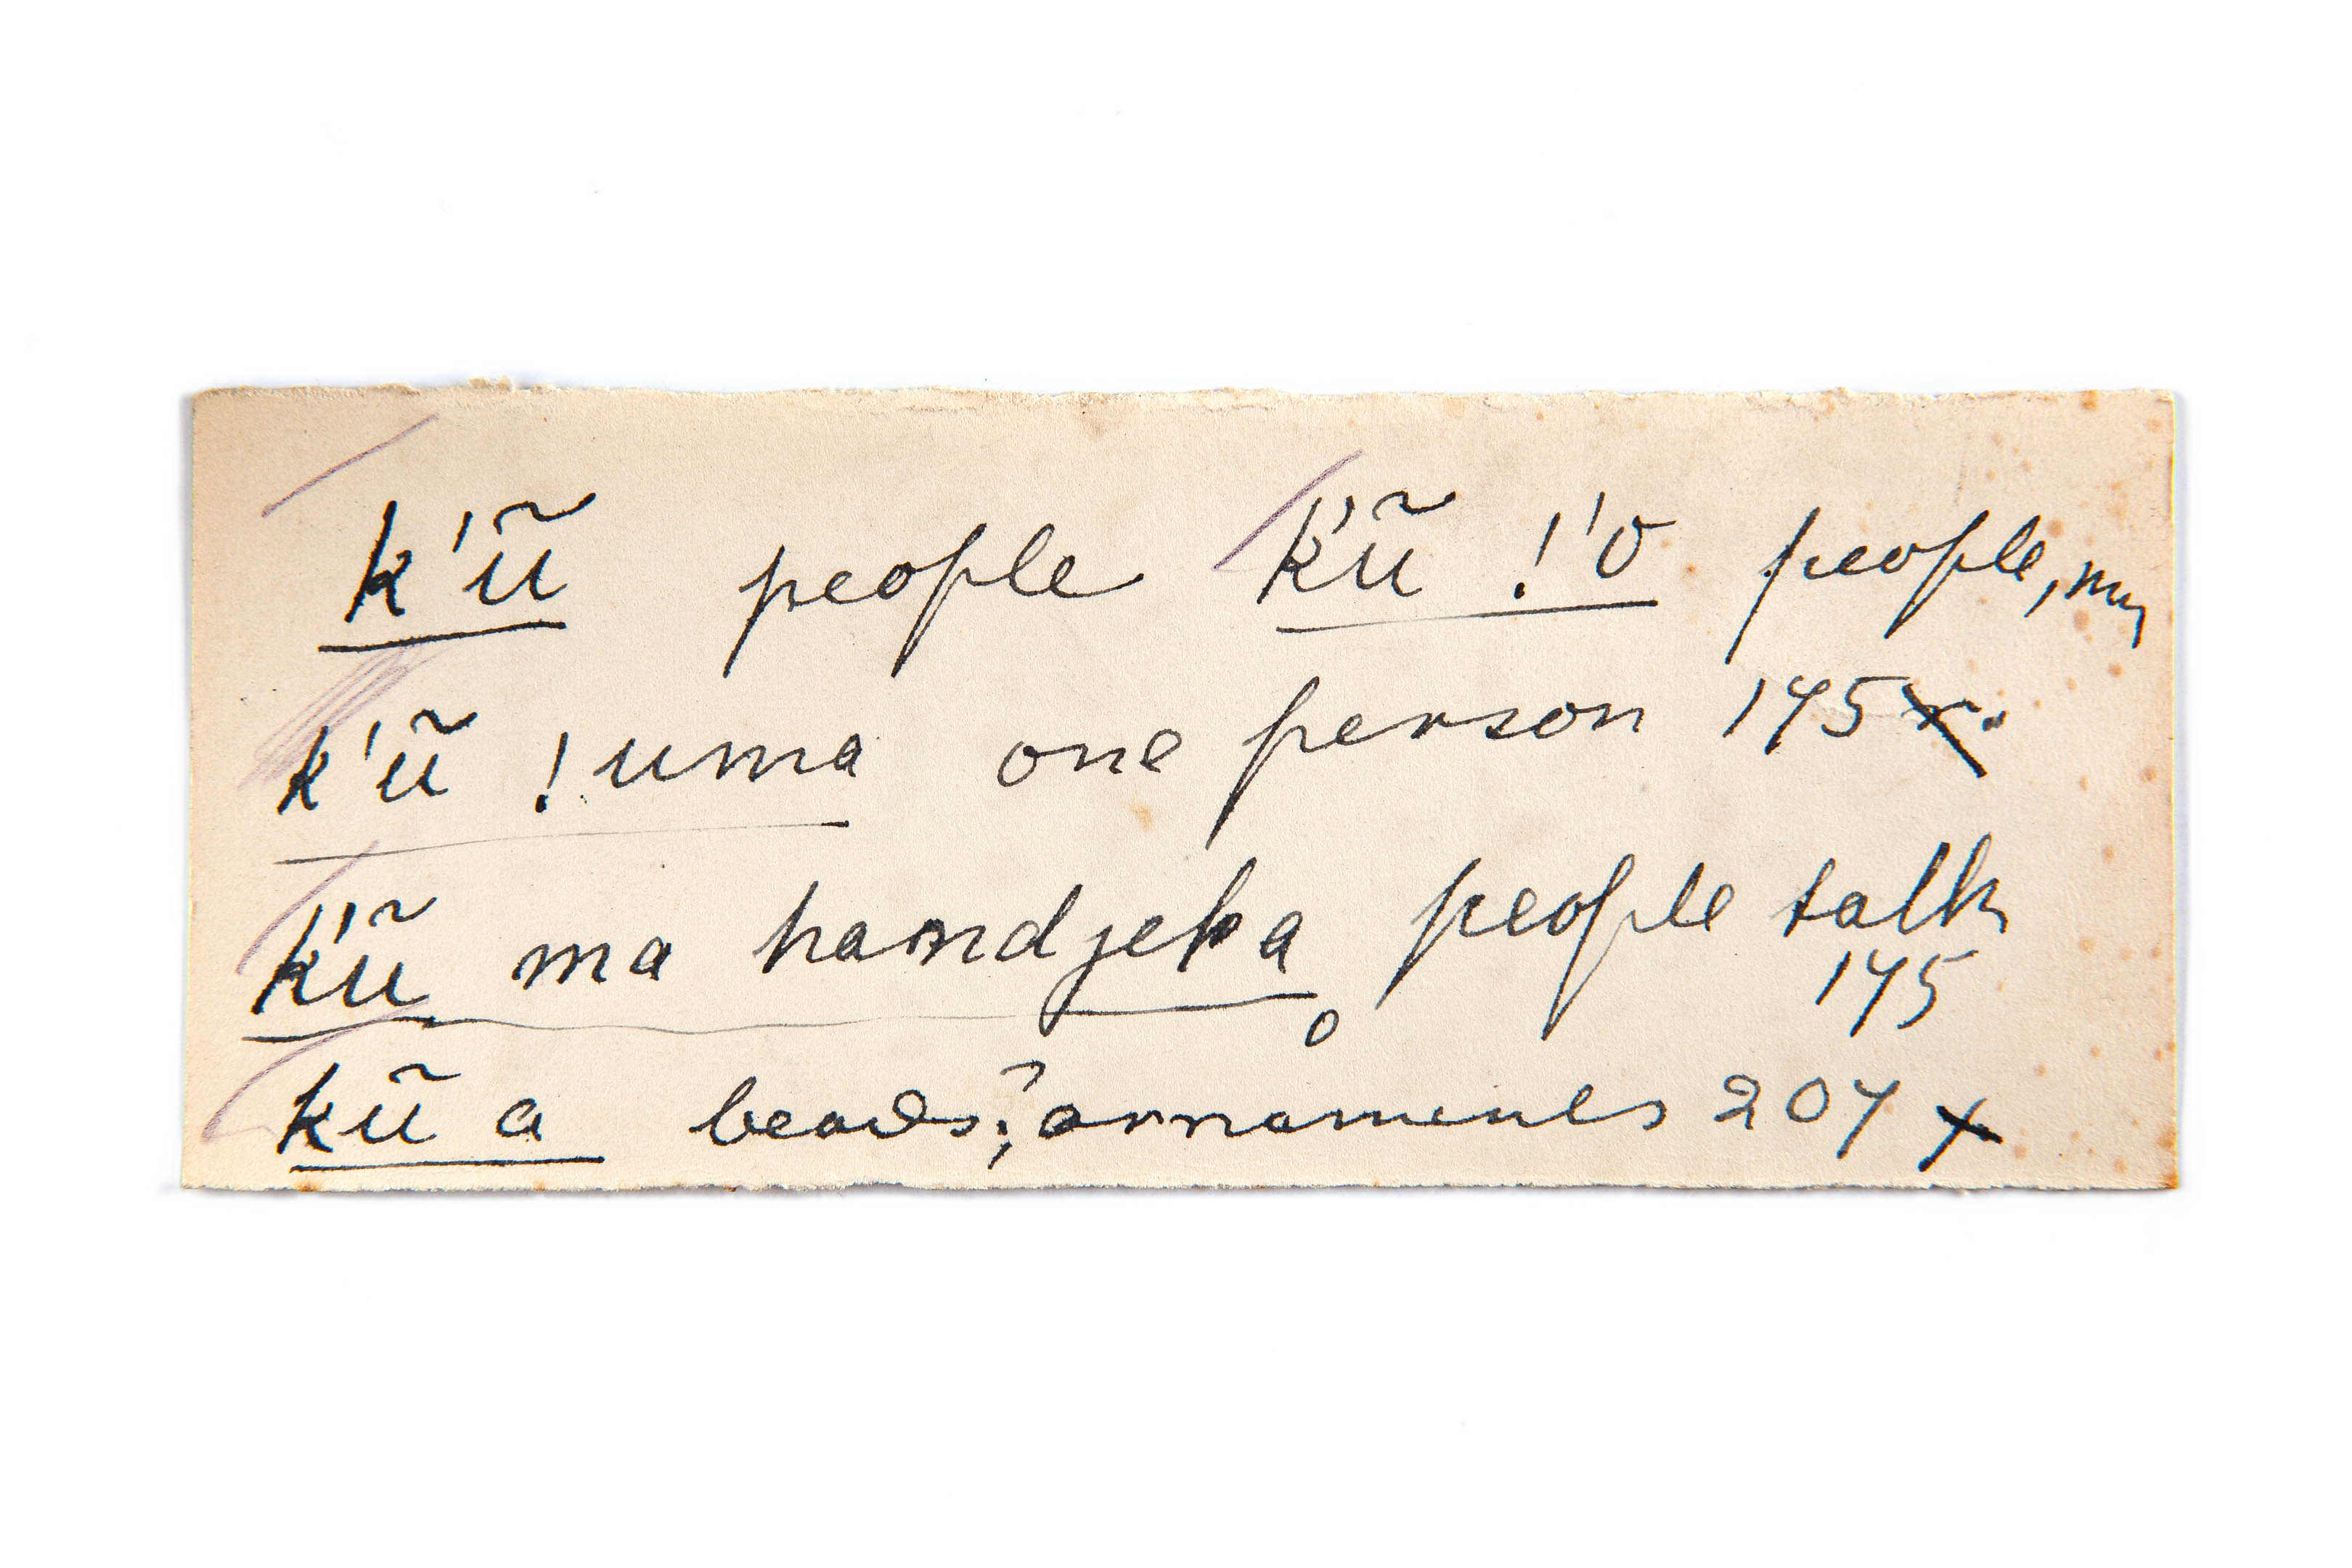 k'ũ people k'ũ !'o people, my
k'ũ !uma one person 145 x.
k'ũ ma handjeka people talk
145
o
kũ a beads?; ornaments 204 x